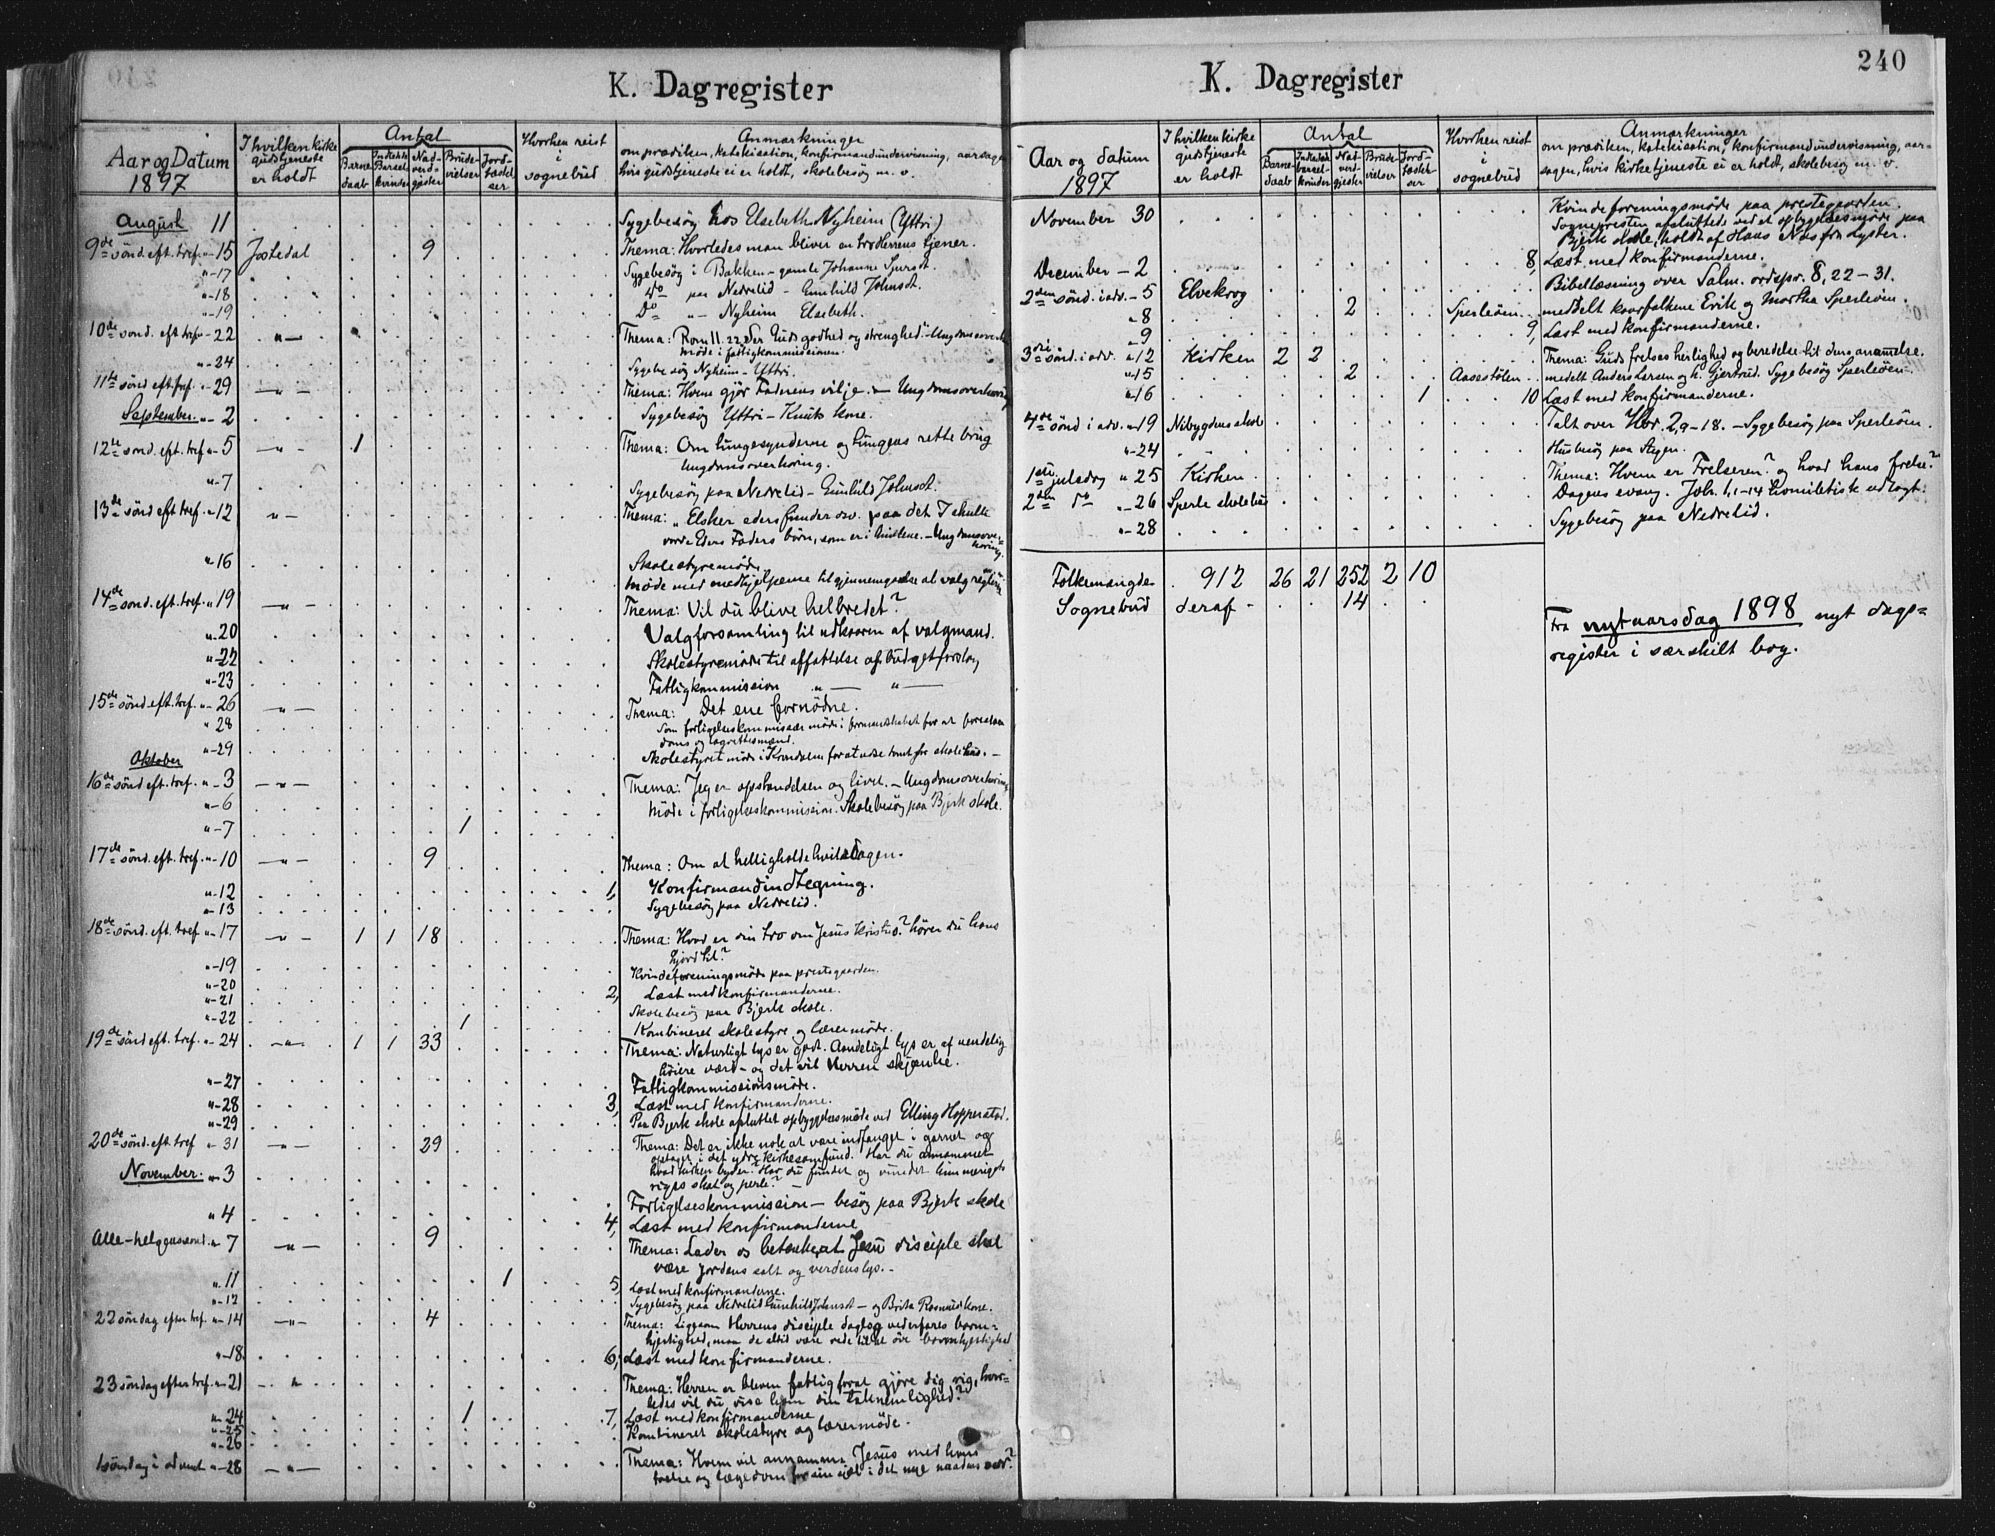 K. Dagregister
Aar og Datum
1897
I hvilken kirke
gudstjeneste
er holdt
Antal
Barne-
daab
Indledte
Barsel-
kvinder
Nad-
verd-
gjester
Brude-
vielser
Jord-
fæstel-
ser
Hvorhen reist
i
sognebud
Anmærkninger
om prædiken, katekisation, konfirmandundervisning, aarsager
hvis gudstjeneste ei er holdt, skolebesøg m. v.
August 11 Sygebesøg hos Elsebeth Nyheim (Yttri)
9de sönd. eft. tref. " 15 Jostedal 9 Thema: Hvorledes man bliver en tro Herrens tjener.
" 17 Sygebesøg i Bakken - gamle Johanne
" 18 Do paa Nedrelid - Gunhild Johnsdt.
" 19 Do " Nyheim Elsebeth.
10de sönd. eft. tref. " 22 " Thema: Rom 11. 22 Guds godhed og strenghed.
møde i fatligkommissionen.
" 24 Sygebesøg Nyheim - Yttri.
11te sönd. eft. tref. " 29 " Thema: Hvem gjör Faderens vilje. - Ungdomsoverhøring
September " 2 Sygebesøg Yttri - Knuts kone.
12te sönd. eft. tref. " 5 " 1 Thema: Om tungesynderne og tungens rette brug
Ungdomsoverhøring.
" 7 Sygebesøg paa Nedrelid - Gunhild Johnsdt.
13de sönd. eft. tref. " 12 " Thema: "Elsker eders fiender osv. paa det I skulle
vorde Eders Faders børn, som er i himlene. - Ungdomsover-
høring.
" 16 Skolestyremøde
Møde med medhjelperne til gjennemgaaelse af valg
14de sönd. eft. tref. " 19 " Thema: Vil du blive helbredet?
" 20 Valgforsamling til udkaaren af valgmænd.
" 22 Skolestyremøde til affattelse af budgetforslag
" 23 Fatligkommission " "
15de sönd. eft. tref. " 26 " Thema: Det ene fornødne.
" 28 Som forligelseskommissær møde i formandskabet for at
doms og lagrettesmænd.
" 29 Skolestyret møde i Krundalen for at udse tomt for skolehus. -
Oktober
16de sönd. eft. tref. " 3 " Thema: Jeg er opstandelsen og livet. - Ungdomsoverhøring
" 6 Møde i forligelseskommission. Skolebesøg paa Bjerk skole.
" 7 1
17de sönd. eft. tref. " 10 " 9 Thema: Om at helligholde hviledagen.
" 12 1, Konfirmandindtegning.
" 13 Sygebesøg paa Nedrelid.
18de sönd. eft. tref " 17 " 1 1 18 Thema: Hvad er din tro om Jesus Kristus? hører du hans
hjord til?
" 19 Kvindeforeningsmøde paa prestegaarden.
" 20 2, Læst med konfirmanderne.
" 21 Skolebesøg paa Bjerk skole.
" 22 1 Kombineret skolestyre og lærermøde.
19de sönd. eft. tref. " 24 " 1 1 33 Thema: Naturligt lys er godt. Aandeligt lys er af uendelig
høiere værd - og det vil Herren skjænke.
" 27 Fatligkommissionsmøde.
" 28 3, Læst med konfirmanderne.
" 29 Paa Bjerk skole afsluttet opbyggelsesmøde ved Elling Hopperstad.
20de sönd. eft. tref " 31 " 29 Thema: Det er ikke nok at være indfanget i garnet og
optaget i det ydre kirkesamfund. Har du annammet
hvad kirken byder? Har du fundet og vundet himmerigets
riges skat og perle? -
November. " 3 Forligelseskommission - besøg paa Bjerk skole
" 4 4, Læst med konfirmanderne
Alle-helgensønd. " 7 " 9 Thema: Lader os betænke at Jesu disciple skal
være jordens salt og verdens lys. -
" 11 1 5, Læst med konfirmanderne.
" 12 Sygebesøg paa Nedrelid Gunhild Johnsdt - og Brita Rasmus kone.
22 söndag efter tref. " 14 " 4 Thema: Ligesom Herrens disciple daglog vederfares barm-
hjertighed, maa de altid være rede til at øve barmhjertighed
" 18 6, Læst med konfirmanderne.
23 söndag efter tref. " 21 " Thema: Herren er bleven fattig forat gjøre dig rig, hvor-
ledes vil du vise ham din taknemlighed?
" 24 1 7, Læst med konfirmanderne
" 25 Kombineret skolestyre og lærermøde.
" 26
1söndag i advent " 28 " Thema: Hvem vil annamme Jesus med hans
frelse og lægedom for sin sjæl i det nye naadens aar?
K. Dagregister
240
Aar og datum
1897
I hvilken kirke
gudstjeneste
er holdt
Antal
Barne-
daab
Indledte
barsel-
kvinder
Nat-
verd-
gjester
Brude-
vielser
Jord-
fæstel-
ser
Hvorhen reist
i
sognebud
Anmærkninger
om prædiken, katekisation, konfirmandundervisning, aar-
sagen, hvis kirketjeneste ei er holdt, skolebesøg m. v.
November 30 Kvindeforeningsmøde paa prestegaarden.
Sognepresten afsluttede ved et opbyggelsesmøde paa
Bjerk skole, holdt af Hans Næs fra Lyster.
December - 2 8, Læst med konfirmanderne.
2den sönd. i adv. - 5 Elvekrog Bibellæsning over Salm. ordspr. 8, 22 - 31.
" 8 2 Sperleøen meddelt kaarfolkene Erik og Martha Sperleøen.
" 9 9, Læst med konfirmanderne.
3die sönd. i adv. " 12 Kirken 2 2 Thema: Guds frelses herlighed og beredelse til dens anammelse.
" 15 2 Aasestølen meddelt Anders Larsen og k. Gjertrud. Sygebesøg Sperleøen
" 16 1 10 Læst med konfirmanderne.
4de sönd i adv. " 19 Nibygdens skole Talt over Hbr. 2, 9 - 18. - Sygebesøg paa Sperleøen.
" 24 Husbesøg paa Stegen.
1ste juledag " 25 Kirken Thema: Hvem er Frelseren? og hvad hans frelse?
2den Do " 26 Sperle skolehus Dagens evang. Joh. 1, 1-14 homiletisk udlagt.
" 28 Sygebesøg paa Nedrelid.
Folkemængde 912 26 21 252 2 10
Sognebud deraf - 14
Fra nytaarsdag 1898 nyt dags=
register i særskilt bog.